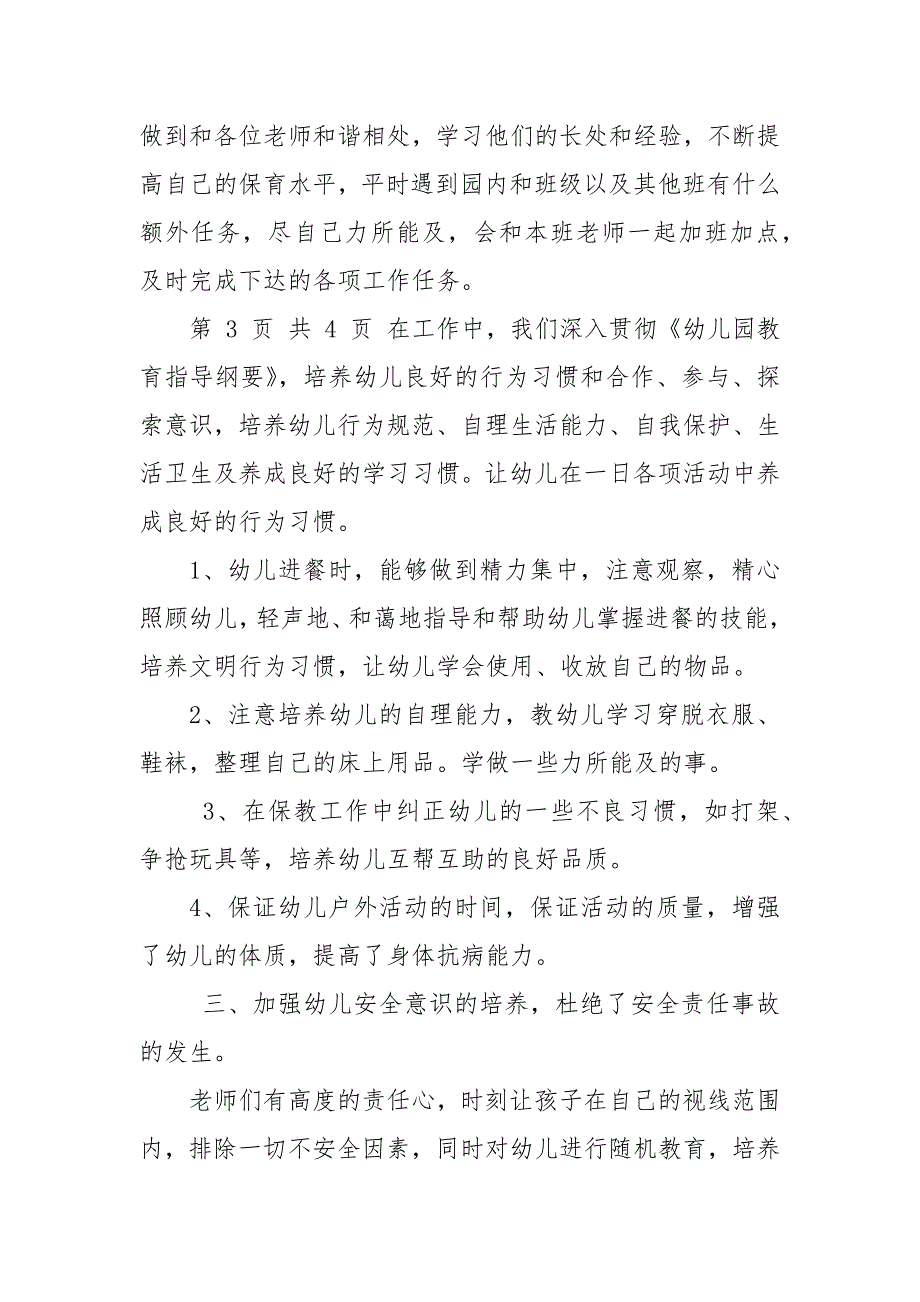 做到和各位老师和谐相处，学习他们的长处和经验，不断提
高自己的保育水平，平时遇到园内和班级以及其他班有什么
额外任务，尽自己力所能及，会和本班老师一起加班加点，
及时完成下达的各项工作任务。
第 3 页 共 4 页 在工作中，我们深入贯彻《幼儿园教
育指导纲要》，培养幼儿良好的行为习惯和合作、参与、探
索意识，培养幼儿行为规范、自理生活能力、自我保护、生
活卫生及养成良好的学习习惯。让幼儿在一日各项活动中养
成良好的行为习惯。
1、幼儿进餐时，能够做到精力集中，注意观察，精心
照顾幼儿，轻声地、和蔼地指导和帮助幼儿掌握进餐的技能，
培养文明行为习惯，让幼儿学会使用、收放自己的物品。
2、注意培养幼儿的自理能力，教幼儿学习穿脱衣服、
鞋袜，整理自己的床上用品。学做一些力所能及的事。
3、在保教工作中纠正幼儿的一些不良习惯，如打架、
争抢玩具等，培养幼儿互帮互助的良好品质。
4、保证幼儿户外活动的时间，保证活动的质量，增强
了幼儿的体质，提高了身体抗病能力。
三、加强幼儿安全意识的培养，杜绝了安全责任事故
的发生。
老师们有高度的责任心，时刻让孩子在自己的视线范围
内，排除一切不安全因素，同时对幼儿进行随机教育，培养